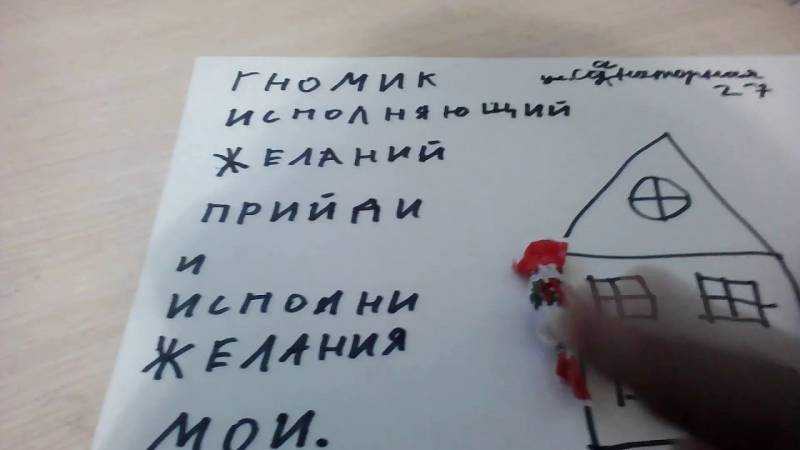 ГНОМИК
ИСПОЛНЯЮЩИЙ
ЖЕЛАНИЙ
ПРИЙДИ
И
ИСПОЛНИ
ЖЕЛАНИЯ
МОИ.
2-7